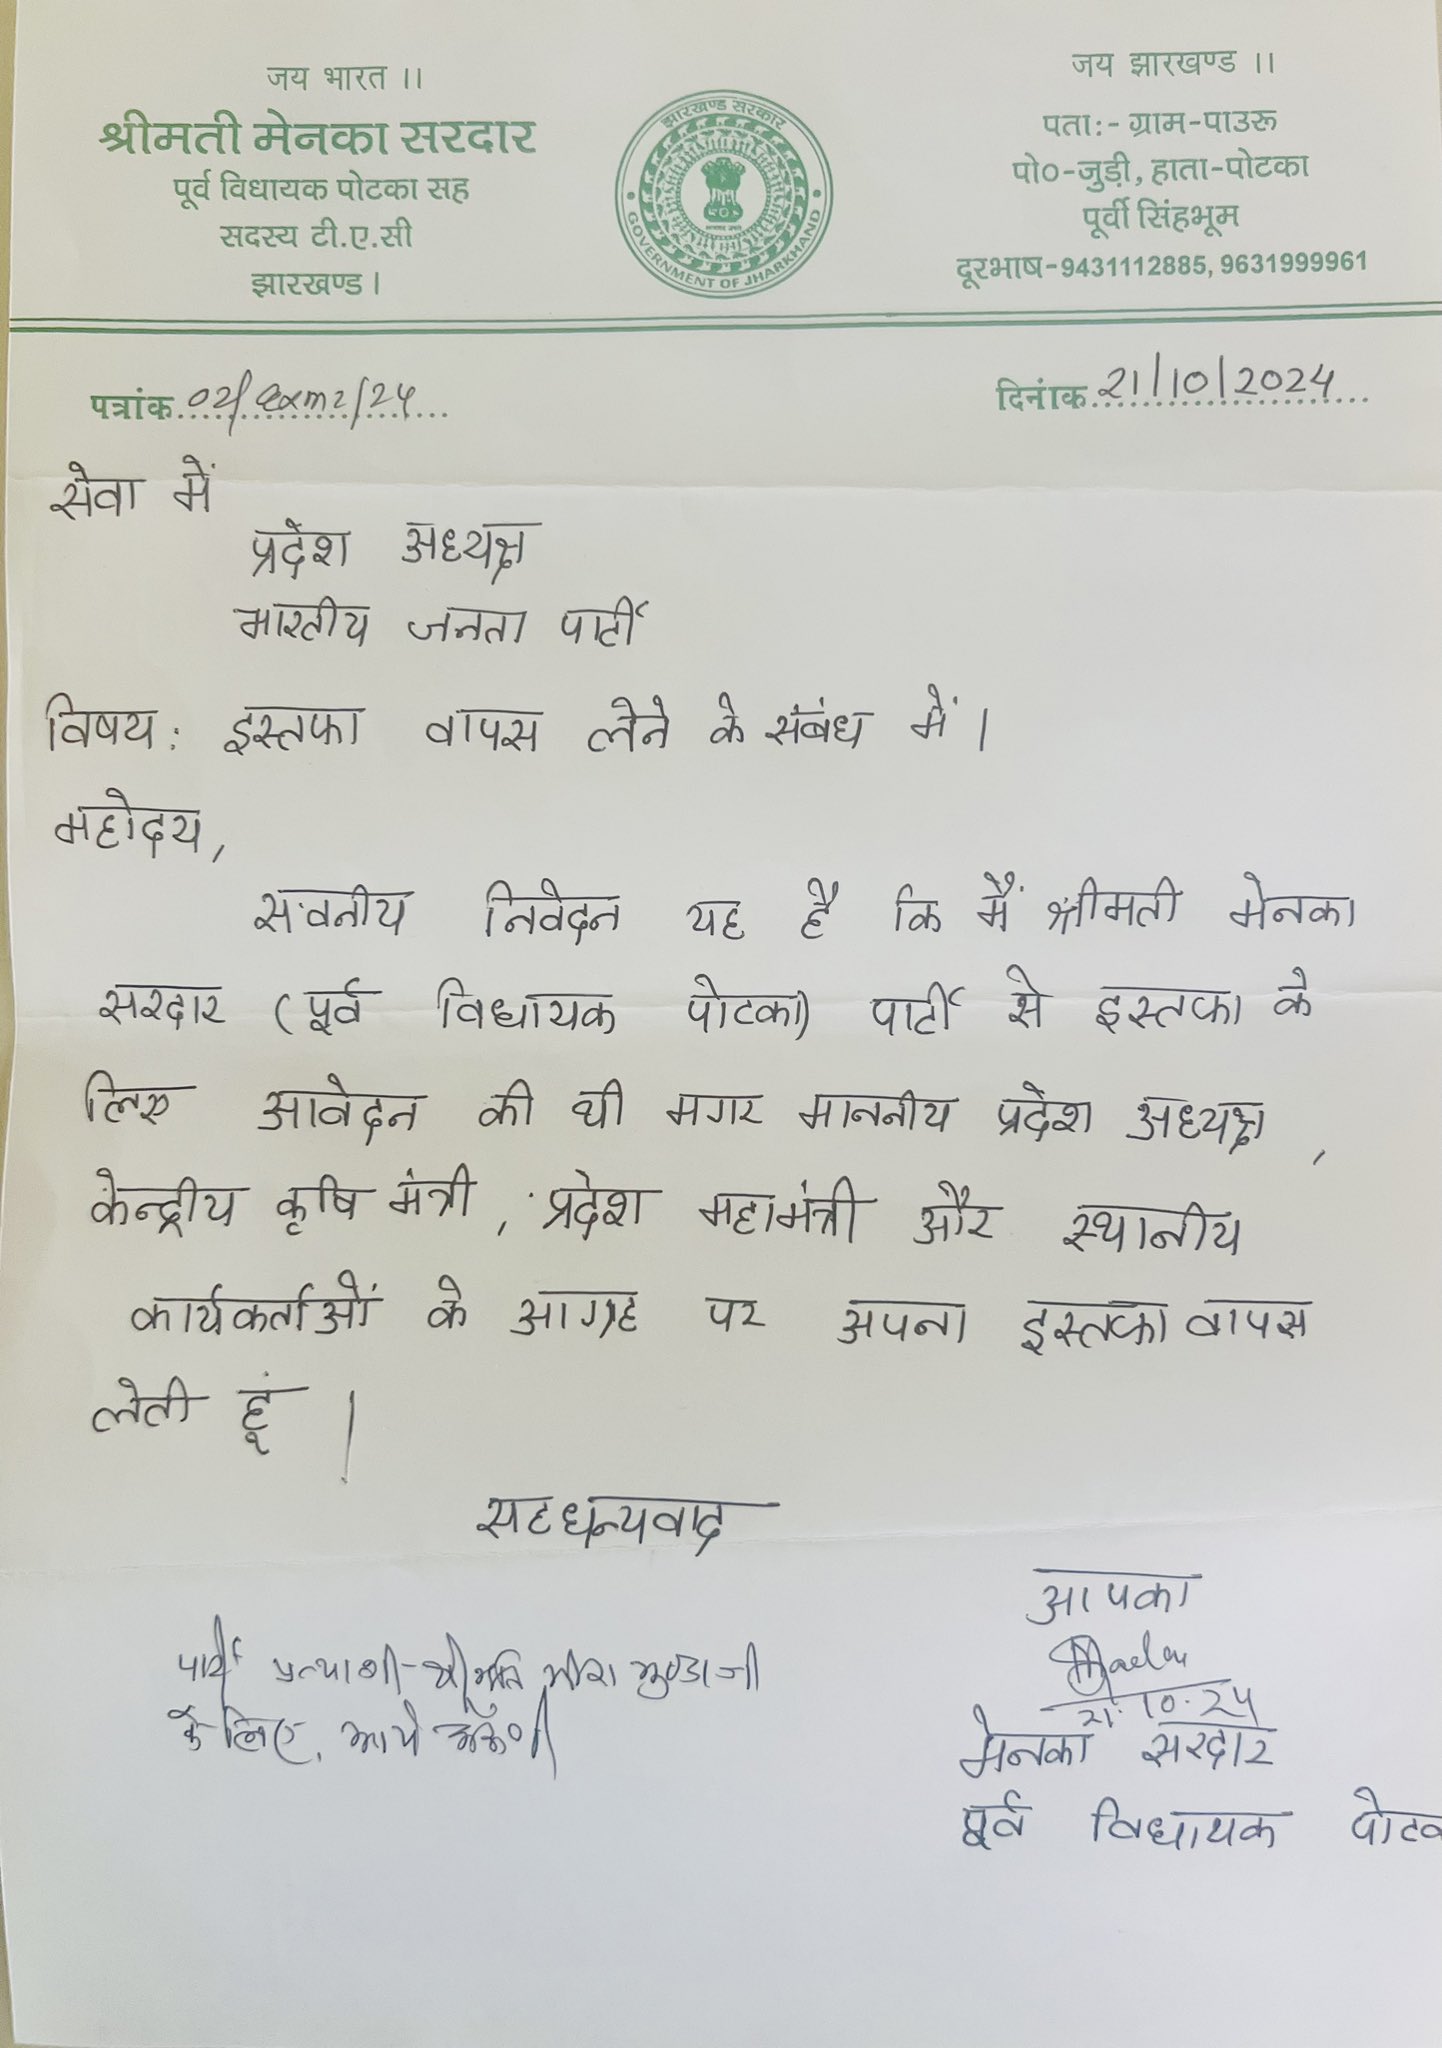 जय भारत ।।
श्रीमती मेनका सरदार
पूर्व विधायक पोटका सह
सदस्य टी.ए.सी
झारखण्ड।
झारखण्ड सरकार
GOVERNMENT OF JHARKHAND
जय झारखण्ड ।।
पता:- ग्राम-पाउरू
पो०-जुड़ी, हाता-पोटका
पूर्वी सिंहभूम
दूरभाष-9431112885, 9631999961
पत्रांक 02/ /24
दिनांक 21/10/2024
सेवा में
प्रदेश अध्यक्ष
भारतीय जनता पार्टी
विषय: इस्तफा वापस लेने के संबंध में।
महोदय,
स.वनीय निवेदन यह है कि मैं श्रीमती मेनका
सरदार (पूर्व विधायक पोटका) पार्टी से इस्तफा के
लिए आवेदन की थी मगर माननीय प्रदेश अध्यक्ष,
केन्द्रीय कृषि मंत्री, प्रदेश महामंत्री और स्थानीय
कार्यकर्ताओं के आग्रह पर अपना इस्तफा वापस
लेती हूं।
सहधन्यवाद
पार्टी प्रत्याशी-श्रीमति मीरा मुण्डा जी
के लिए, कार्य करूँगी
आपका
21.10.24
मेनका सरदार
पूर्व विधायक